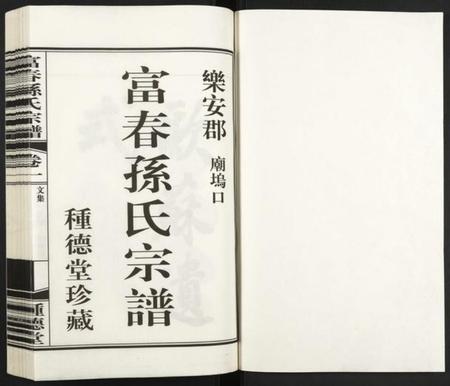 樂安郡 廟塢口
富春孫氏宗譜
種德堂珍藏
富春孫氏宗譜 卷一
文集
種德堂